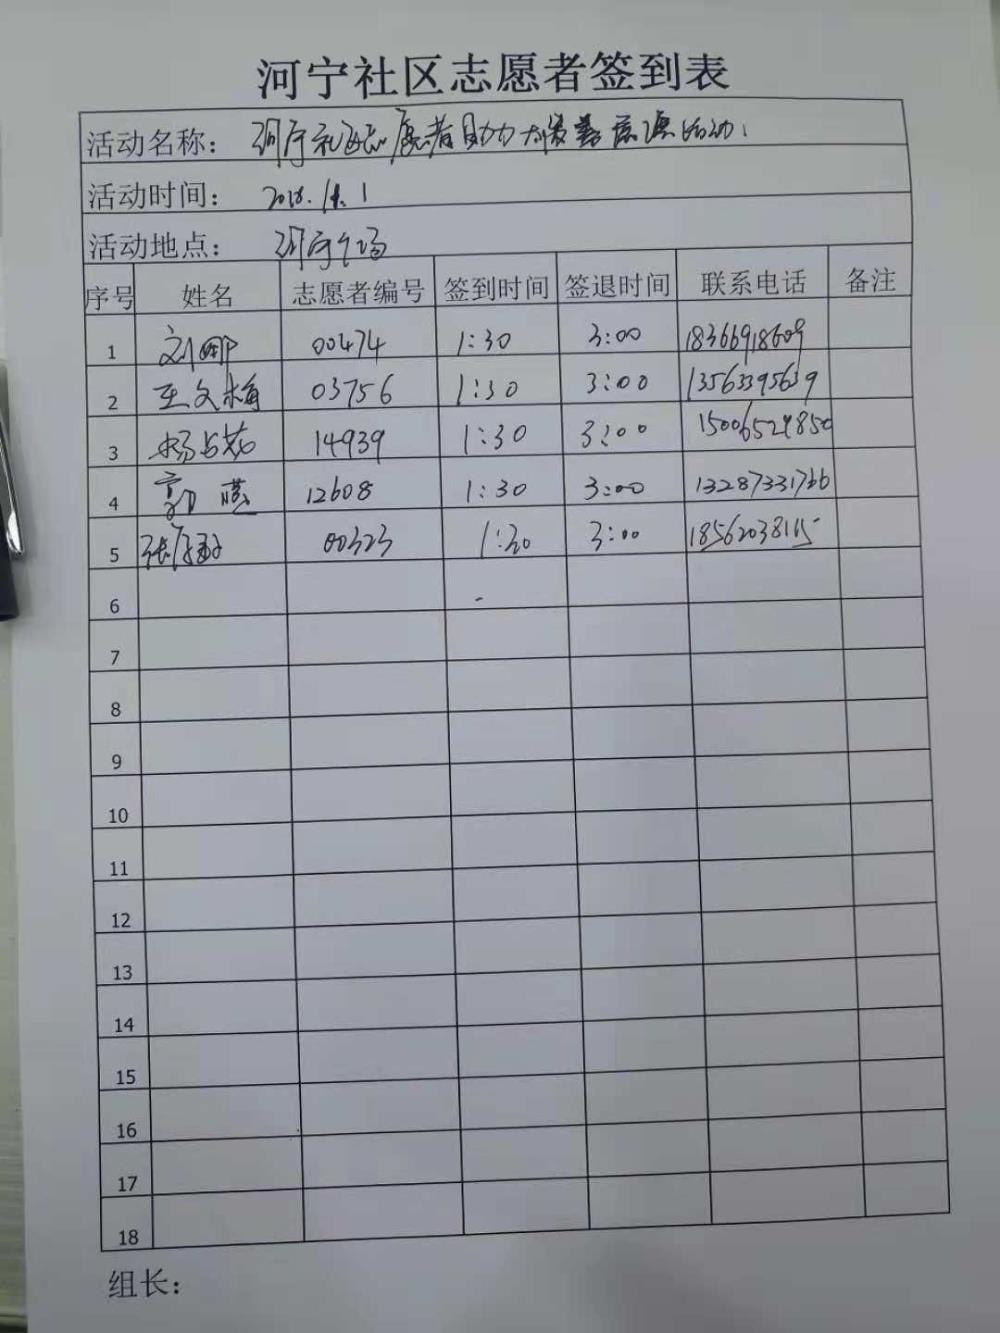 河宁社区志愿者签到表
活动名称: 河宁社区志愿者助力大 活动
活动时间: 2018.
活动地点: 河宁广场
序号 姓名 志愿者编号 签到时间 签退时间 联系电话 备注
1 刘娜 00474 1:30 3:00 18366918609
2 王文梅 03756 1:30 3:00 13563395639
3 杨 14939 1:30 3:00 15006529850
4 郭 12608 1:30 3:00 13287331766
5 张 00323 1:30 3:00 18562038115
6
7
8
9
10
11
12
13
14
15
16
17
18
组长: